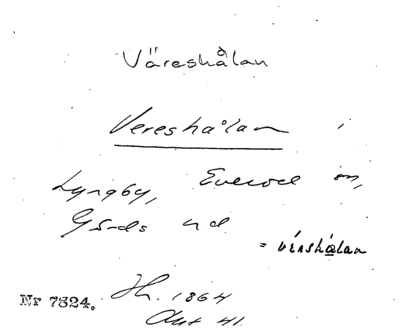 Väreshålan
Vereshålan i
Lyngby, Everöd sn,
Gärds hd.
= vérshålan
Nr 7324. Hh. 1864
Akt 41.